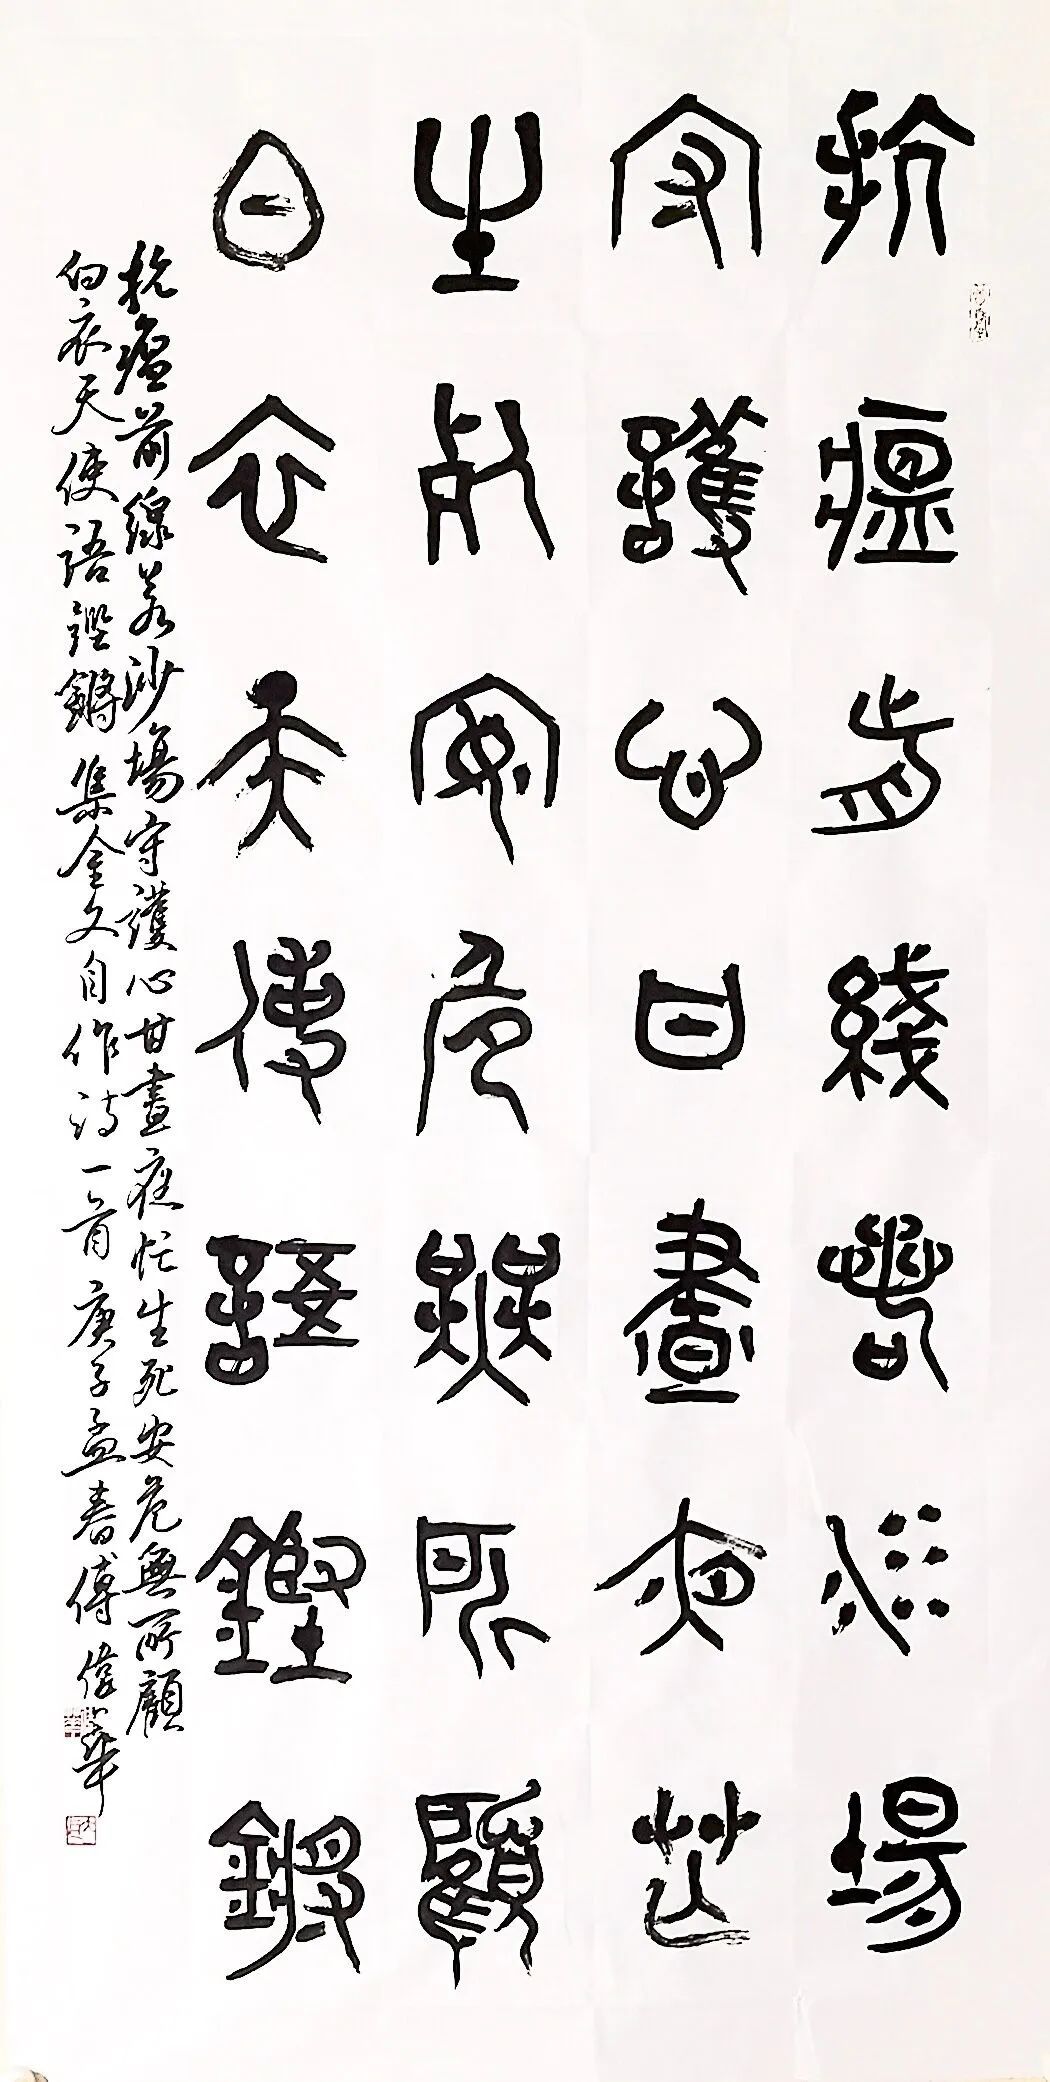 抗瘟前綫若沙場
守護心甘晝夜茫
生死安危無所顧
白衣天使語鏗鏘
抗瘟前線若沙場守護心甘晝夜忙生死安危無所顧
白衣天使語鏗鏘 集金文自作诗一首 庚子孟春傅偉華